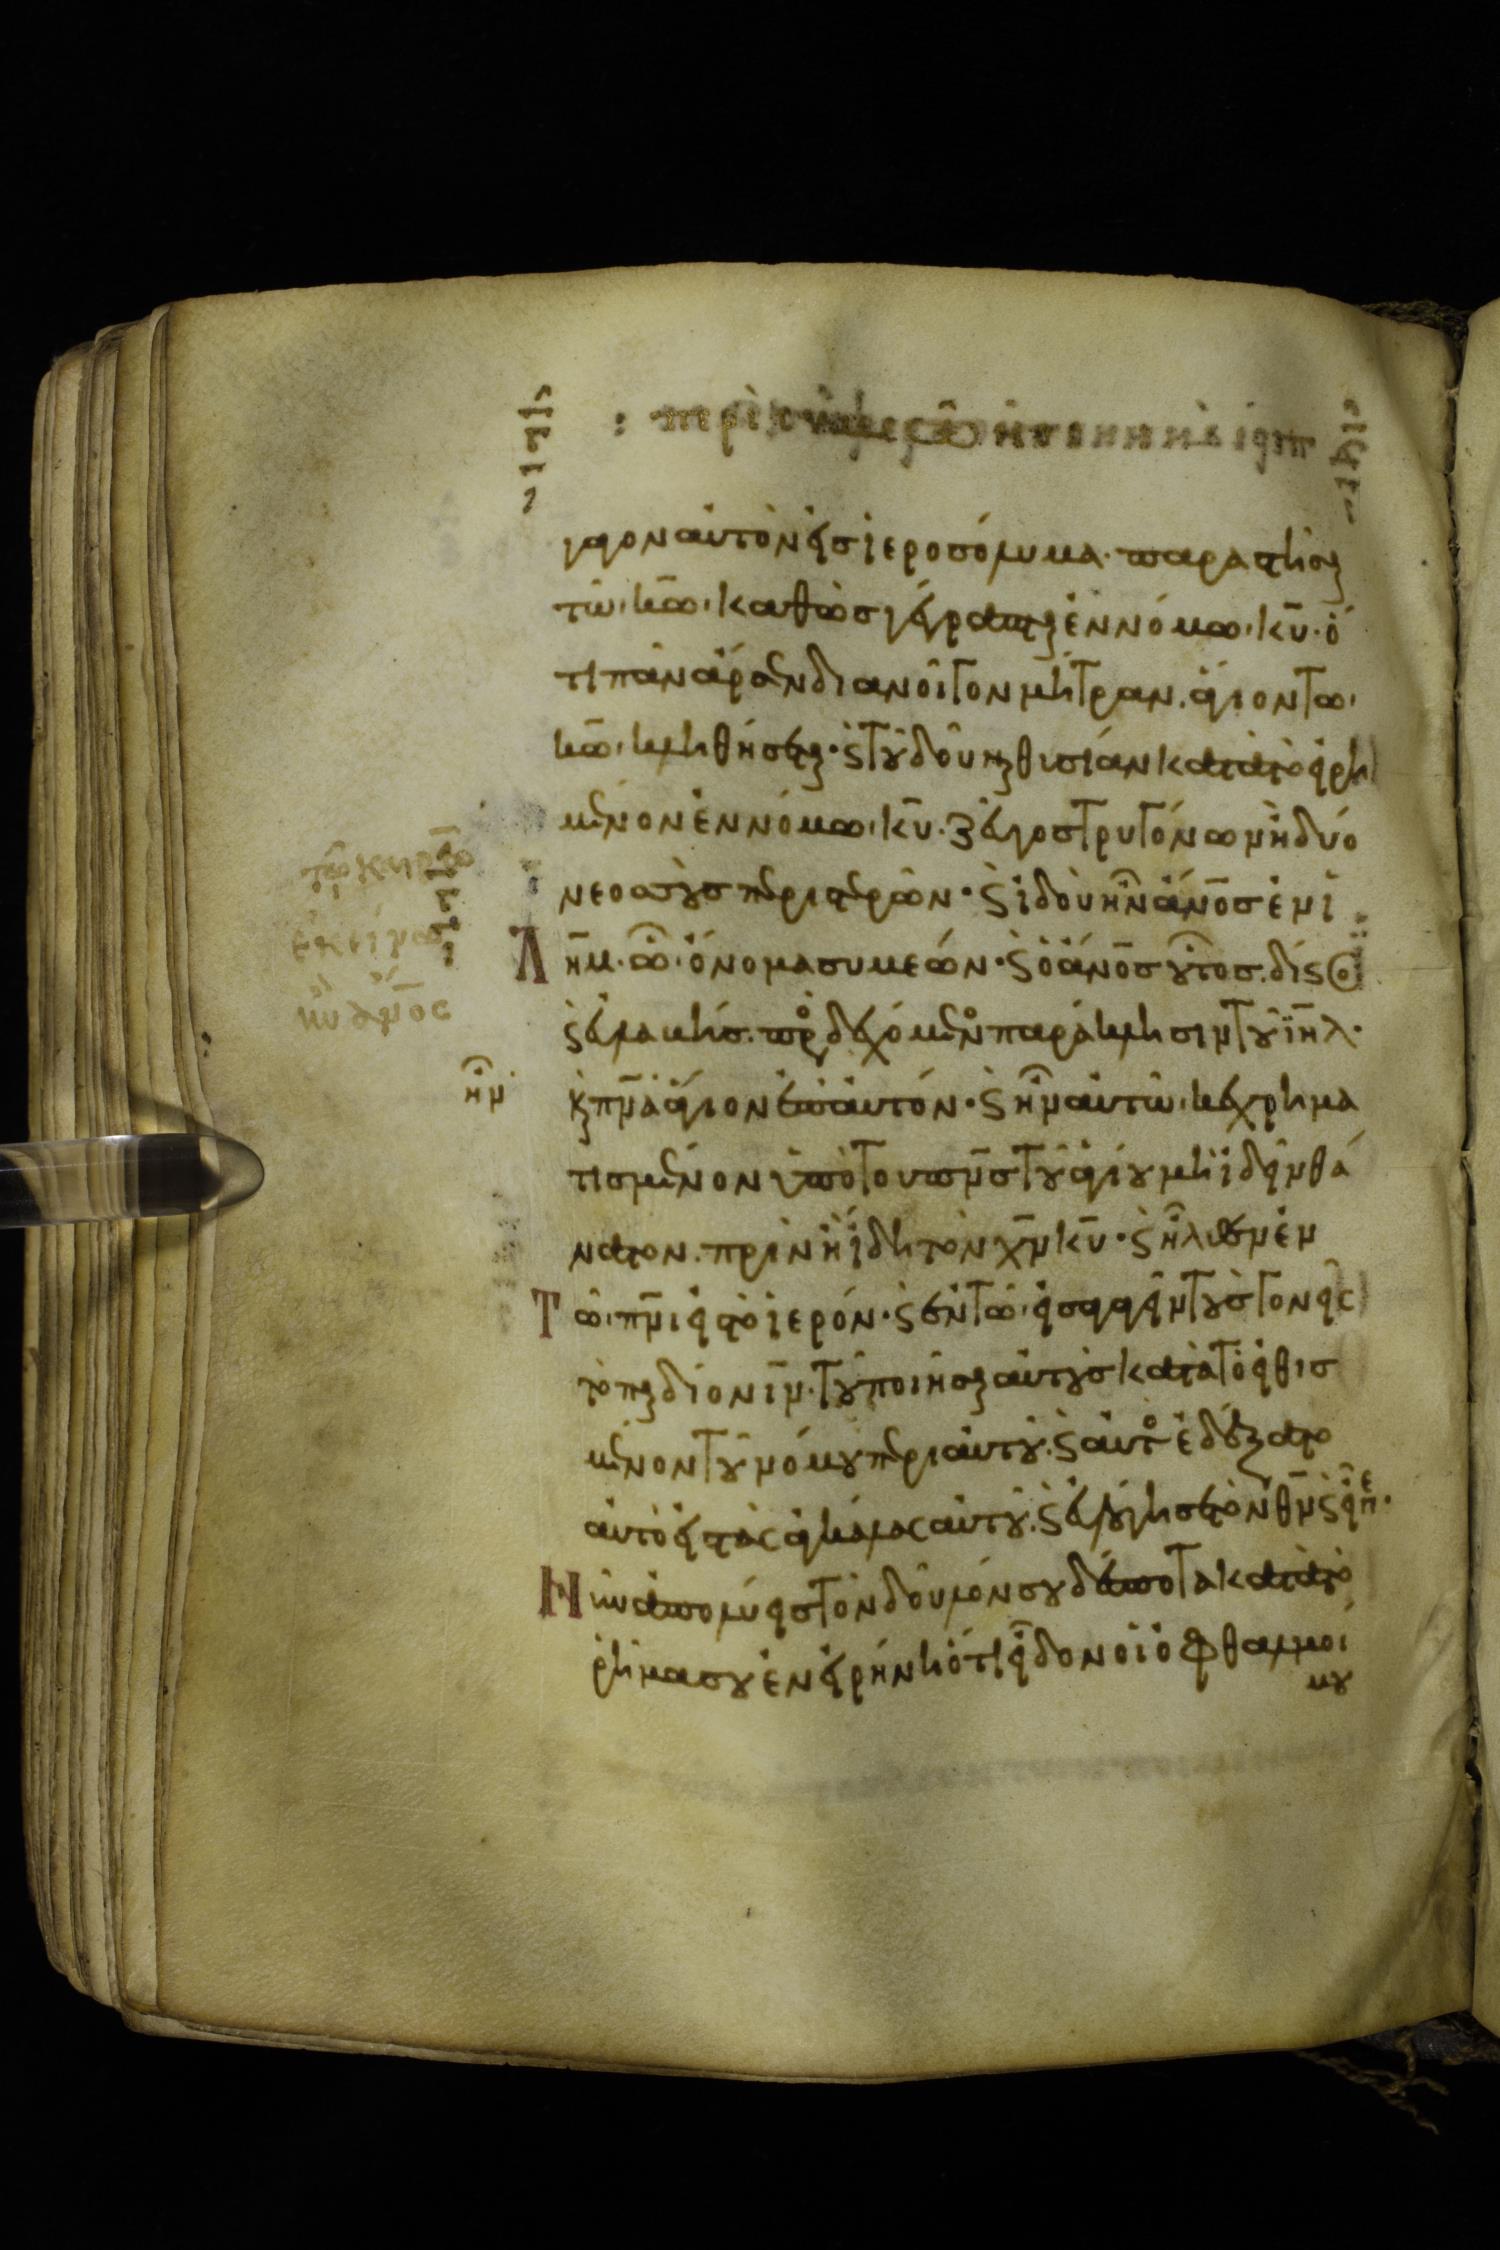 γαγον αὐτὸν εἰς ἱεροσόλυμα· παραστῆσαι
τῶ κω̄· καθὼς γέγραπται ἐν νόμω κῡ· ὅ
τι πᾶν ἄρσεν διανοῖγον μήτραν. ἅγιον τω
κω̄· κληθήσεται· καὶ τοῦ δοῦναι θυσίαν κατὰ τὸ εἰρη
μένον ἐν νόμω κῡ· ζεῦγος τρυγόνων ἢ δύο
νεοσσοὺς περιστερῶν· καὶ ἰδοὺ ἦν ἄνος ἐν ἱ
λῆμ· ὧ ὄνομα συμεών· καὶ ὁ ἄνος οὗτος δίκαιος
καὶ εὐλαβής. προσδεχόμενος παράκλησιν τοῦ ἰηλ·
καὶ πνᾱ ἅγιον ἐπ αὐτόν· καὶ ἦν αὐτῶ κεχρημα
τισμένον ὑπὸ του πνς τοῦ ἁγίου μὴ ἰδεῖν θά
νατον. πρὶν ἢ ἴδη τὸν χν κῡ· καὶ ἦλθεν ἐν
τῶ πνι εἰς τὸ ἱερόν· καὶ ἐν τῶ εἰσαγαγεῖν τοὺς γονεῖς
τὸ παιδίον ιν· τοῦ ποιῆσαι αὐτοὺς κατὰ τὸ εἰθισ
μένον τοῦ νόμου περὶ αὐτοῦ· καὶ αὐτὸς ἐδέξατο
αὐτὸ εἰς τὰς ἀγκάλας αὐτοῦ· καὶ εὐλόγησε τὸν θν καὶ εἶπε·
Νῦν ἀπολύεις τὸν δοῦλόν σου δέσποτα κατὰ τὸ
ῥῆμα σου ἐν εἰρήνη ὅτι εἶδον οἱ ὀφθαλμοί
μου
ἦν